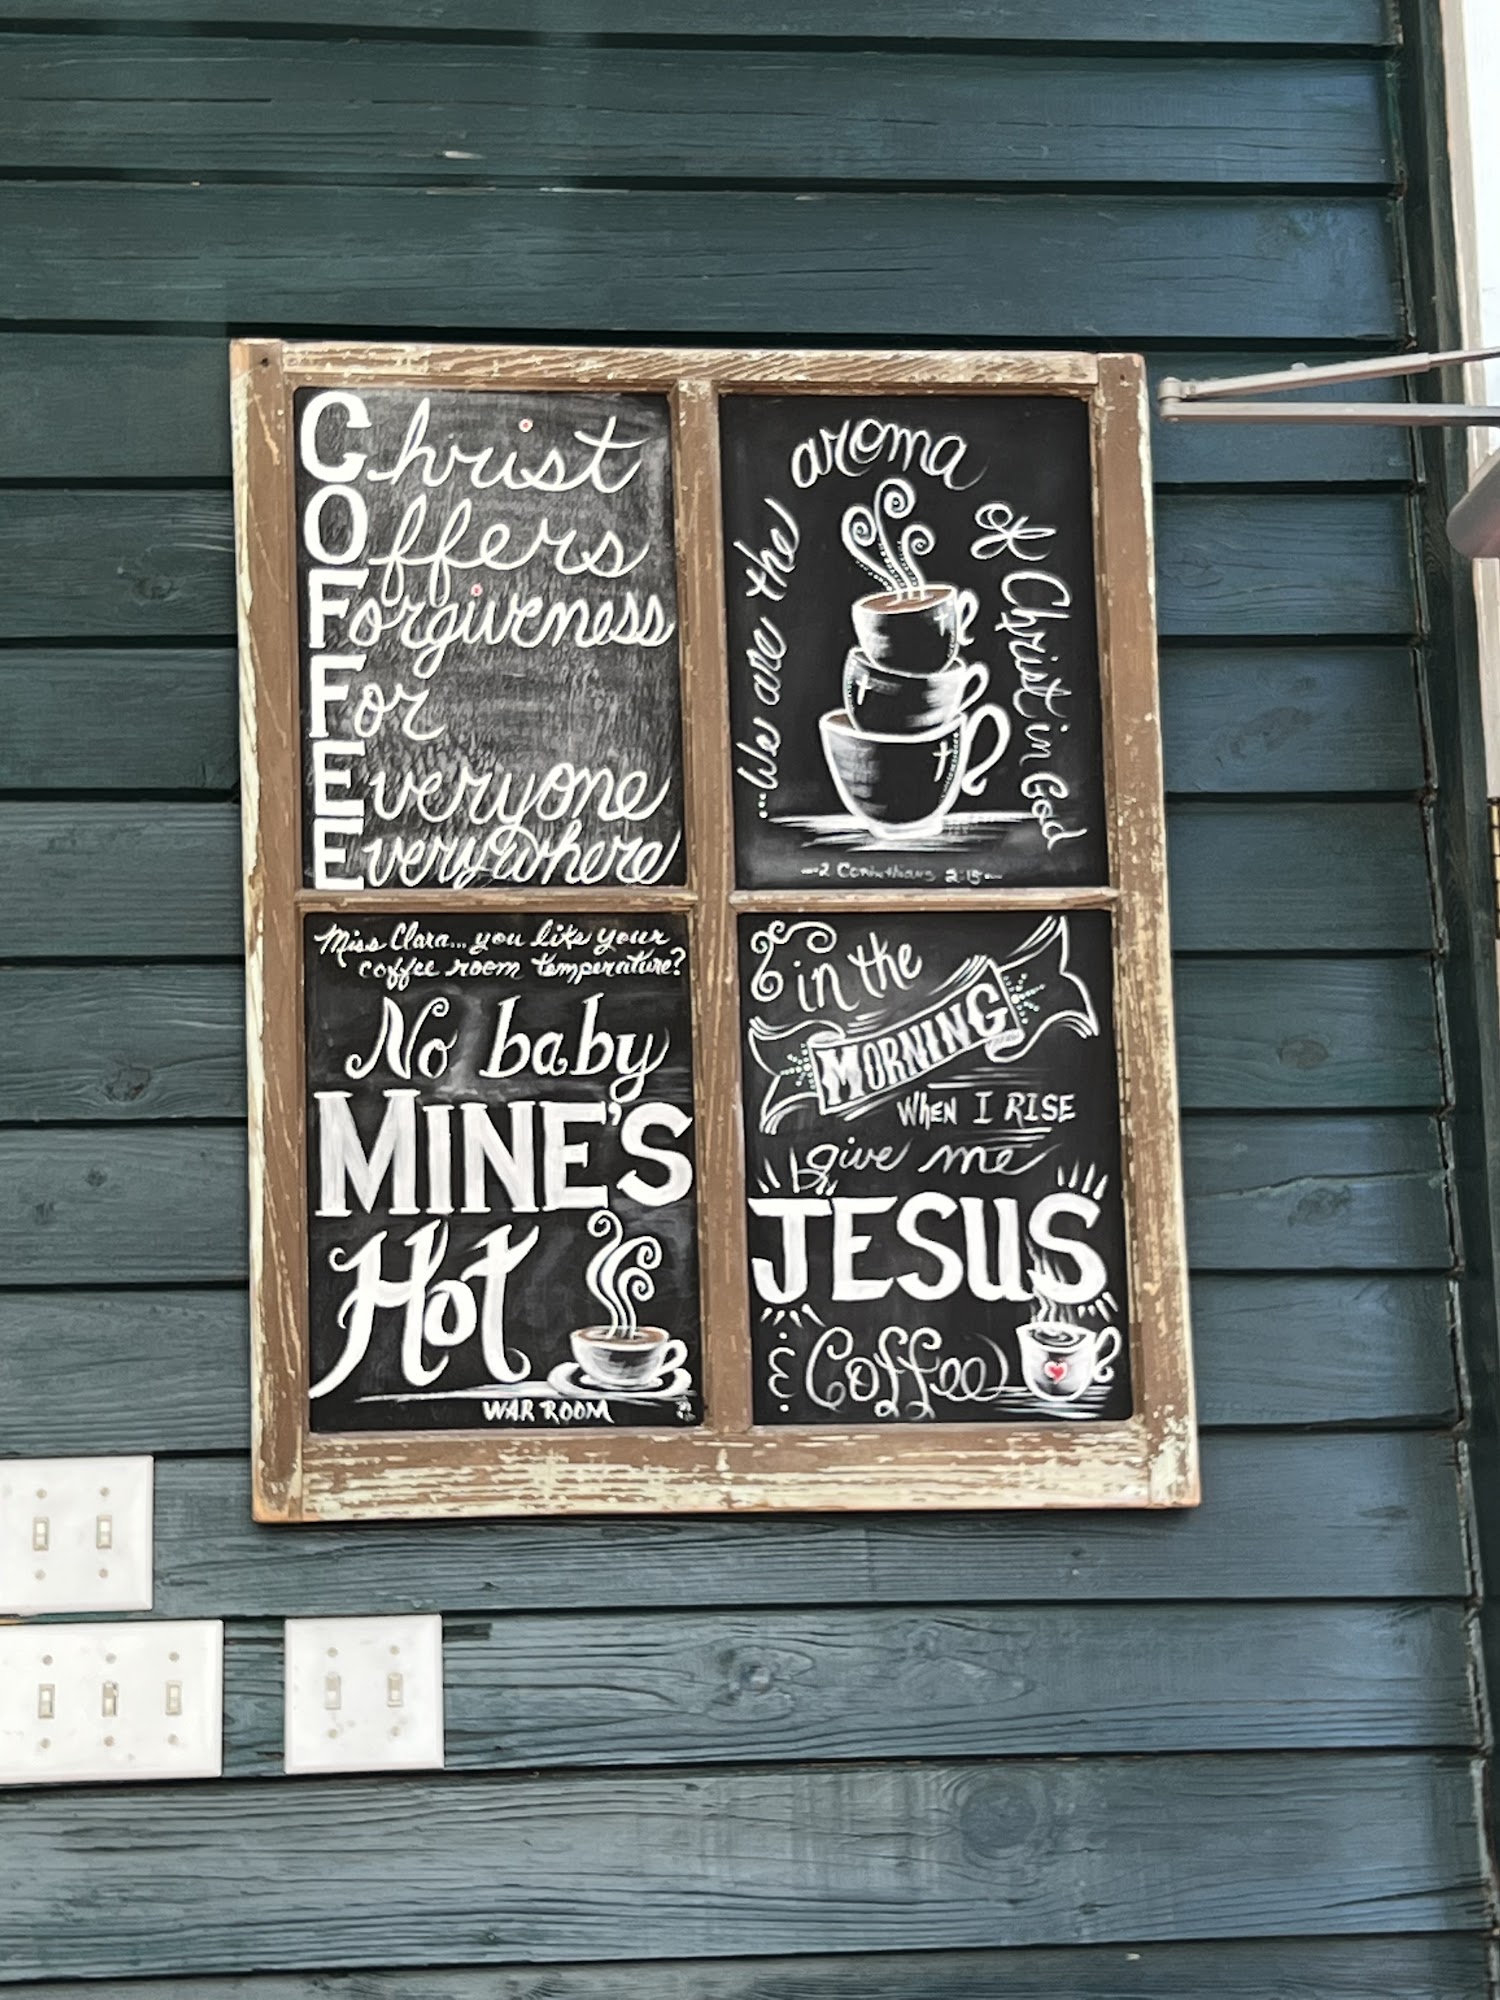 Christ
Offers
Forgiveness
For
Everyone
Everywhere
...We are the aroma of Christ in God
2 Corinthians 2:15
Miss Clara... you like your
coffee room temperature?
No baby
MINE'S
Hot
WAR ROOM
in the
MORNING
WHEN I RISE
give me
JESUS
& Coffee